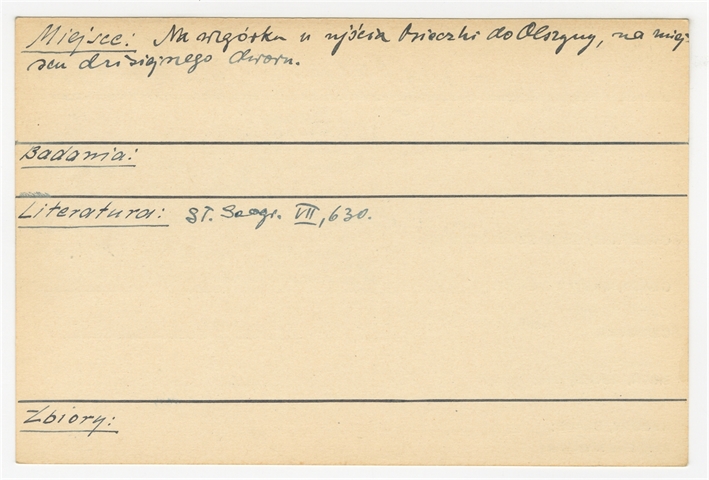 Miejsce: Na wzgórku u ujścia Osieczki do Olszyny, na miej-
scu dzisiejszego dworu.
Badania:
Literatura: Sł. Geogr. VII, 630.
Zbiory: